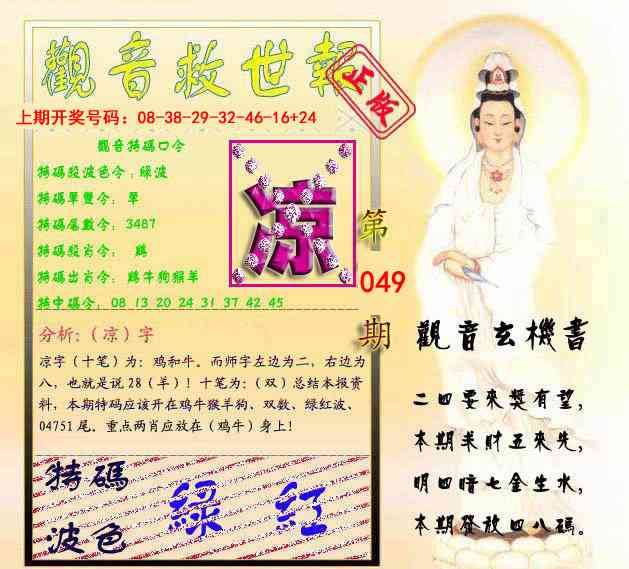 觀音救世報
正版
上期开奖号码：08-38-29-32-46-16+24
觀音特碼口令
特碼殺波色令：綠波
特碼單雙令： 單
特碼尾數令： 3487
特碼殺肖令： 鷄
特碼出肖令： 鷄牛狗猴羊
特中碼令： 08 13 20 24 31 37 42 45
凉
第
049
期
分析:（凉）字
凉字（十笔）为：鸡和牛。而师字左边为二，右边为
八，也就是说28（羊）！十笔为：（双）总结本报资
料，本期特码应该开在鸡牛猴羊狗、双数、绿红波、
04751尾。重点两肖应放在（鸡牛）身上！
特碼
波色
綠 紅
觀音玄機書
二四要來獎有望，
本期半財五來先，
明四暗七金生水，
本期發放四八碼。